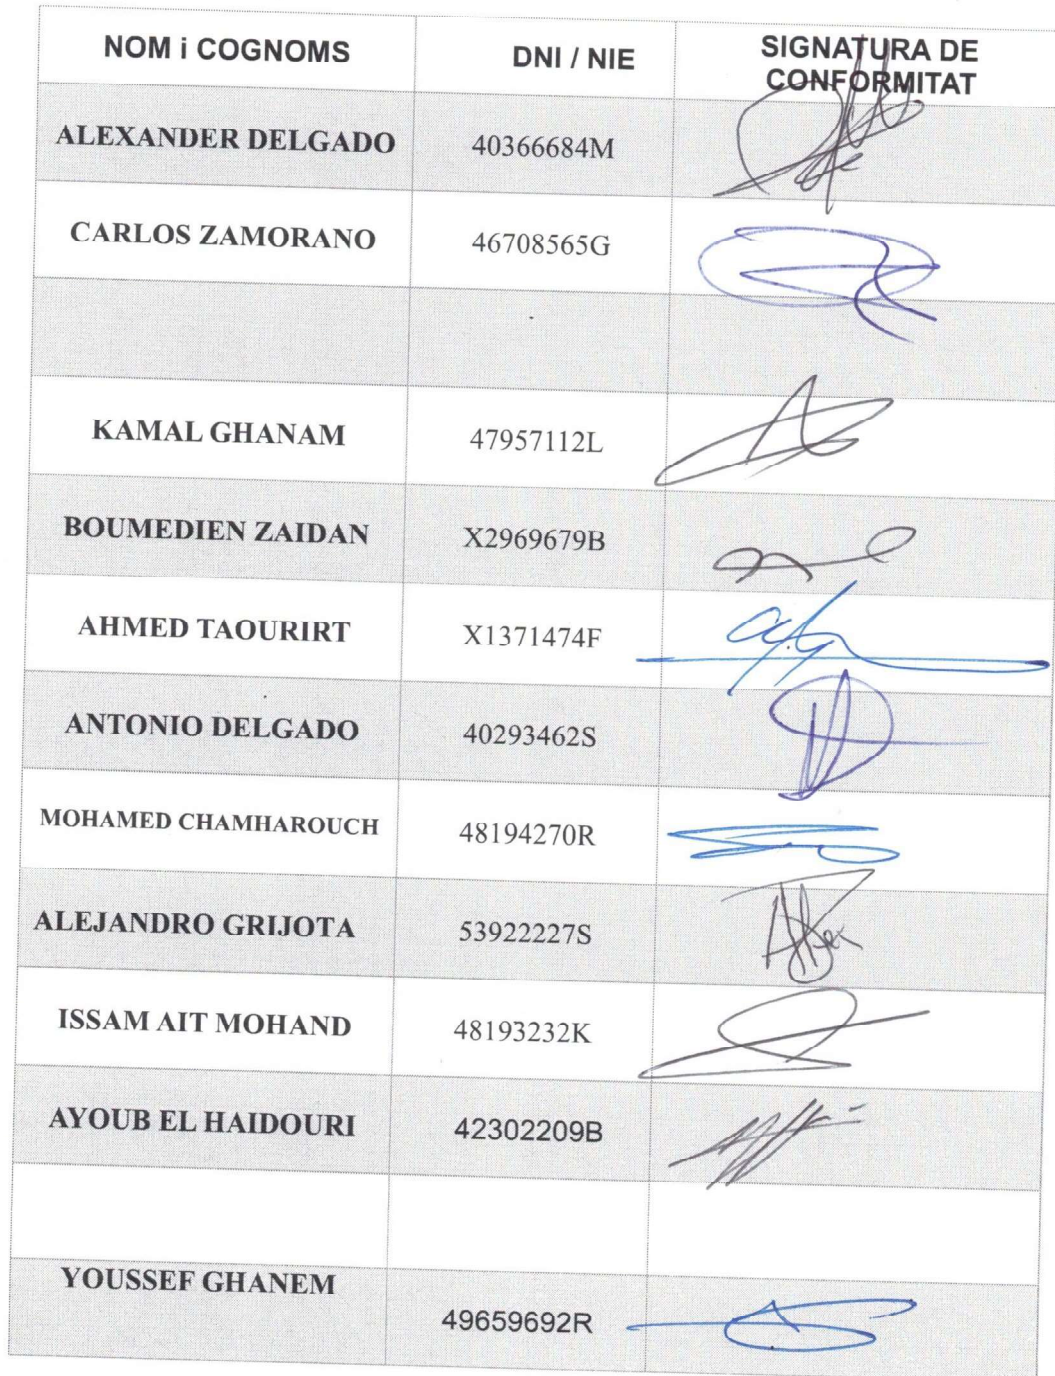 NOM i COGNOMS DNI / NIE SIGNATURA DE
CONFORMITAT
ALEXANDER DELGADO 40366684M
CARLOS ZAMORANO 46708565G
KAMAL GHANAM 47957112L
BOUMEDIEN ZAIDAN X2969679B
AHMED TAOURIRT X1371474F
ANTONIO DELGADO 40293462S
MOHAMED CHAMHAROUCH 48194270R
ALEJANDRO GRIJOTA 53922227S
ISSAM AIT MOHAND 48193232K
AYOUB EL HAIDOURI 42302209B
YOUSSEF GHANEM 49659692R